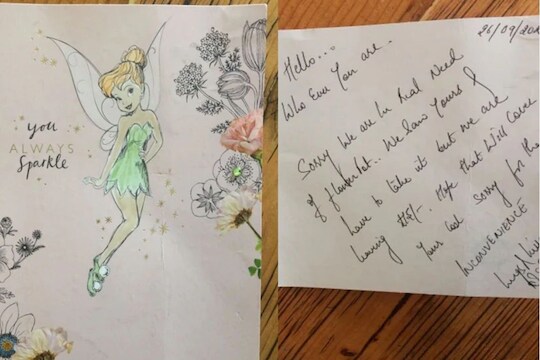 you
ALWAYS
Sparkle
26/09/
Hello...
Who You are.
Sorry We are In Real Need
of flowerPot.. We Saw Yours &
have to take it but we are
Hope that Will Cover
Your Sorry for the
INCONVENIENCE